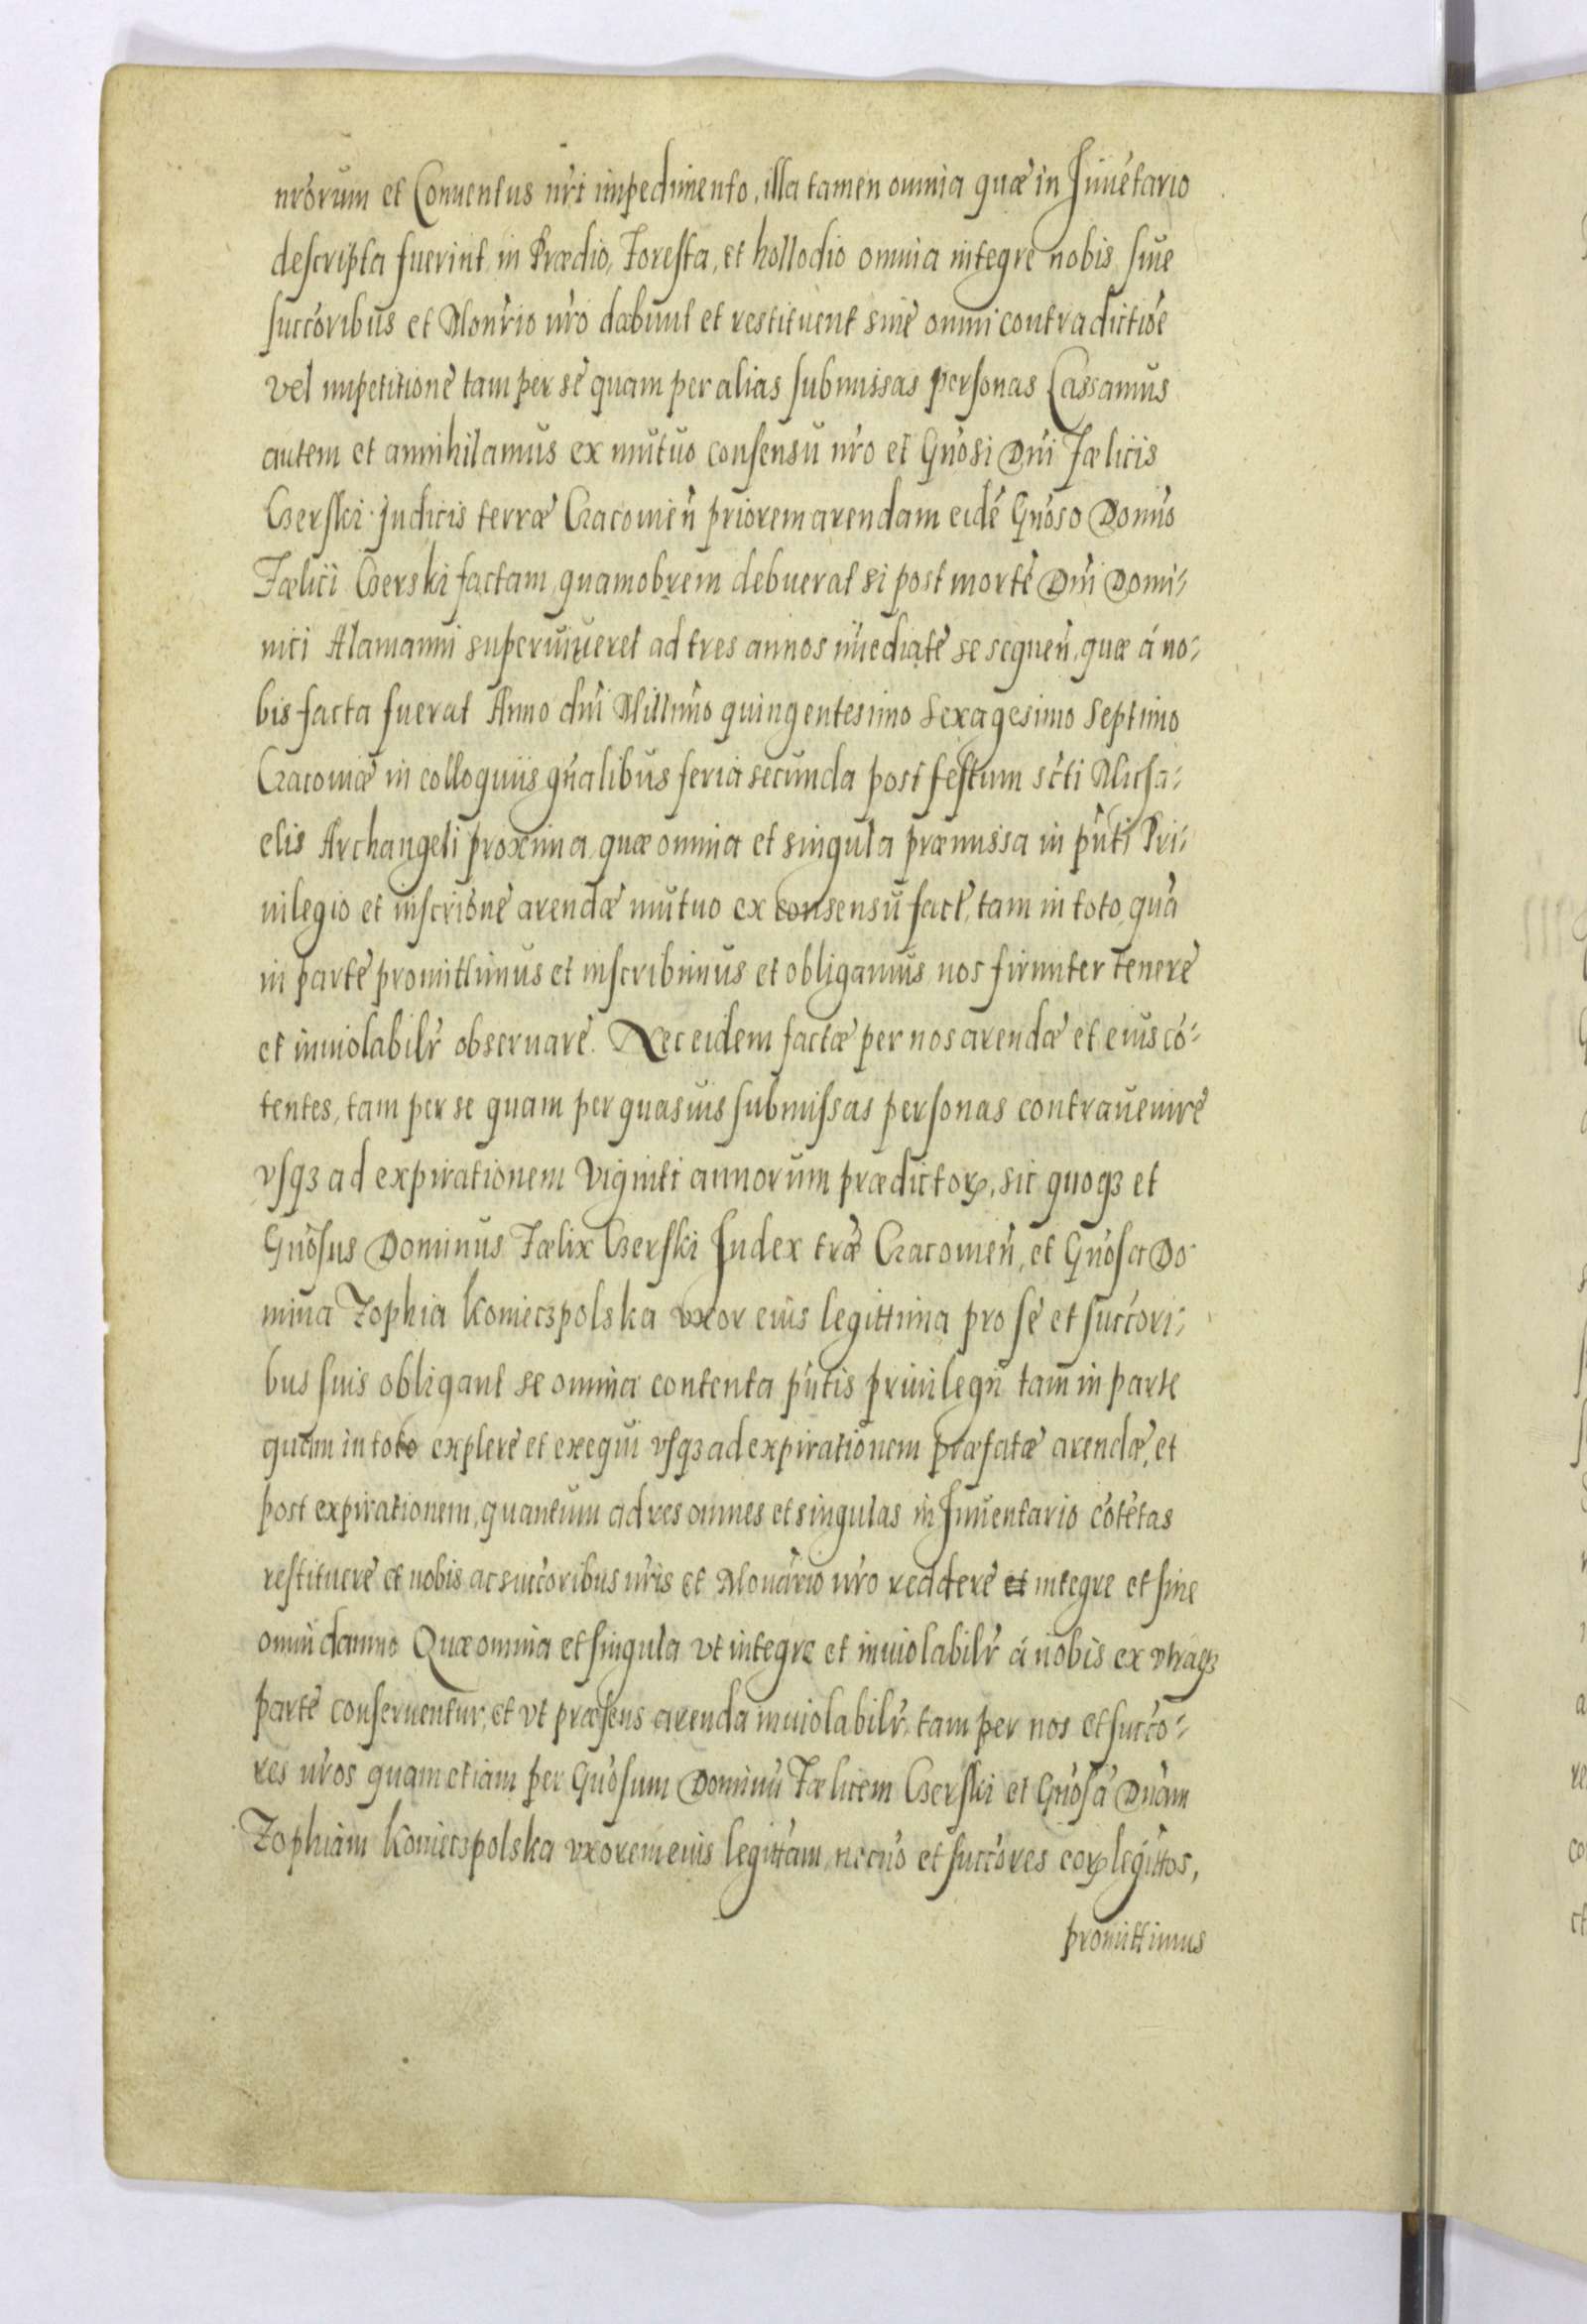 nrõrum et Conuentus nrĩ impedimento, illa tamen omnia quæ in Inuẽtario
descripta fuerint in Prædio, Foresta, et hollodio omnia integre nobis siue
succõribus et Monrĩo nrõ dabunt et restituent sine omni contradictiõe
vel impetitione tam per se quam per alias submissas personas Cassamus
autem et annihilamus ex mutuo consensu nrõ et Gnõsi Dnĩ Fælicis
Czerski Judicis terræ Cracouieñ priorem arendam eidẽ Gnõso Domño
Fælici Czerski factam, quamobrem debuerat si post mortẽ Dnĩ Domi⸗
nici Alamanni superuiueret ad tres annos im̃ediate se sequeñ, quæ á no⸗
bis facta fuerat Anno dnĩ Millimõ quingentesimo Sexagesimo Septimo
Cracouiæ in colloquiis gñalibus feria secunda post festum sctĩ Micha⸗
elis Archangeli proxima, quæ omnia et singula præmissa in pñti Pri⸗
uilegio et inscriõne arendæ mutuo ex consensu fact̃, tam in toto, quã
in parte promittimus et inscribimus et obligamus nos firmiter tenere
et inuiolabilr̃ obseruare. Nec eidem factæ per nos arendæ et eius cõ⸗
tentes, tam per se quam per quasuis submissas personas contrauenire
vsqꝫ ad expirationem Viginti annorum prædictoꝝ, sic quoqꝫ et
Gnõsus Dominus Fælix Czerski Judex træ̃ Cracouieñ, et Gnõsa Do⸗
mina Zophia Konieczpolska vxor eius legittima pro se et succõri⸗
bus suis obligant se omnia contenta pñtis priuilegii tam in parte
quam in toto explere et exequi vsqꝫ ad expirationem præfatæ arendæ, et
post expirationem, quantum ad res omnes et singulas in Inuentario cõtẽtas
restituere et nobis ac succõribus nrĩs et Monãrio nrõ reddere et integre et sine
omni damno Quæ omnia et singula vt integre et inuiolabilr̃ á nobis ex vtraqꝫ
parte conseruentur, et vt præsens arenda inuiolabilr̃, tam per nos et succõ⸗
res nrõs quam etiam per Gnõsum Dominũ Fælicem Czerski et Gnõsã Dnãm
Zophiam Konieczpolska vxorem eius legittãm, necnõ et succõres eoꝝ legittõs,
promittimus